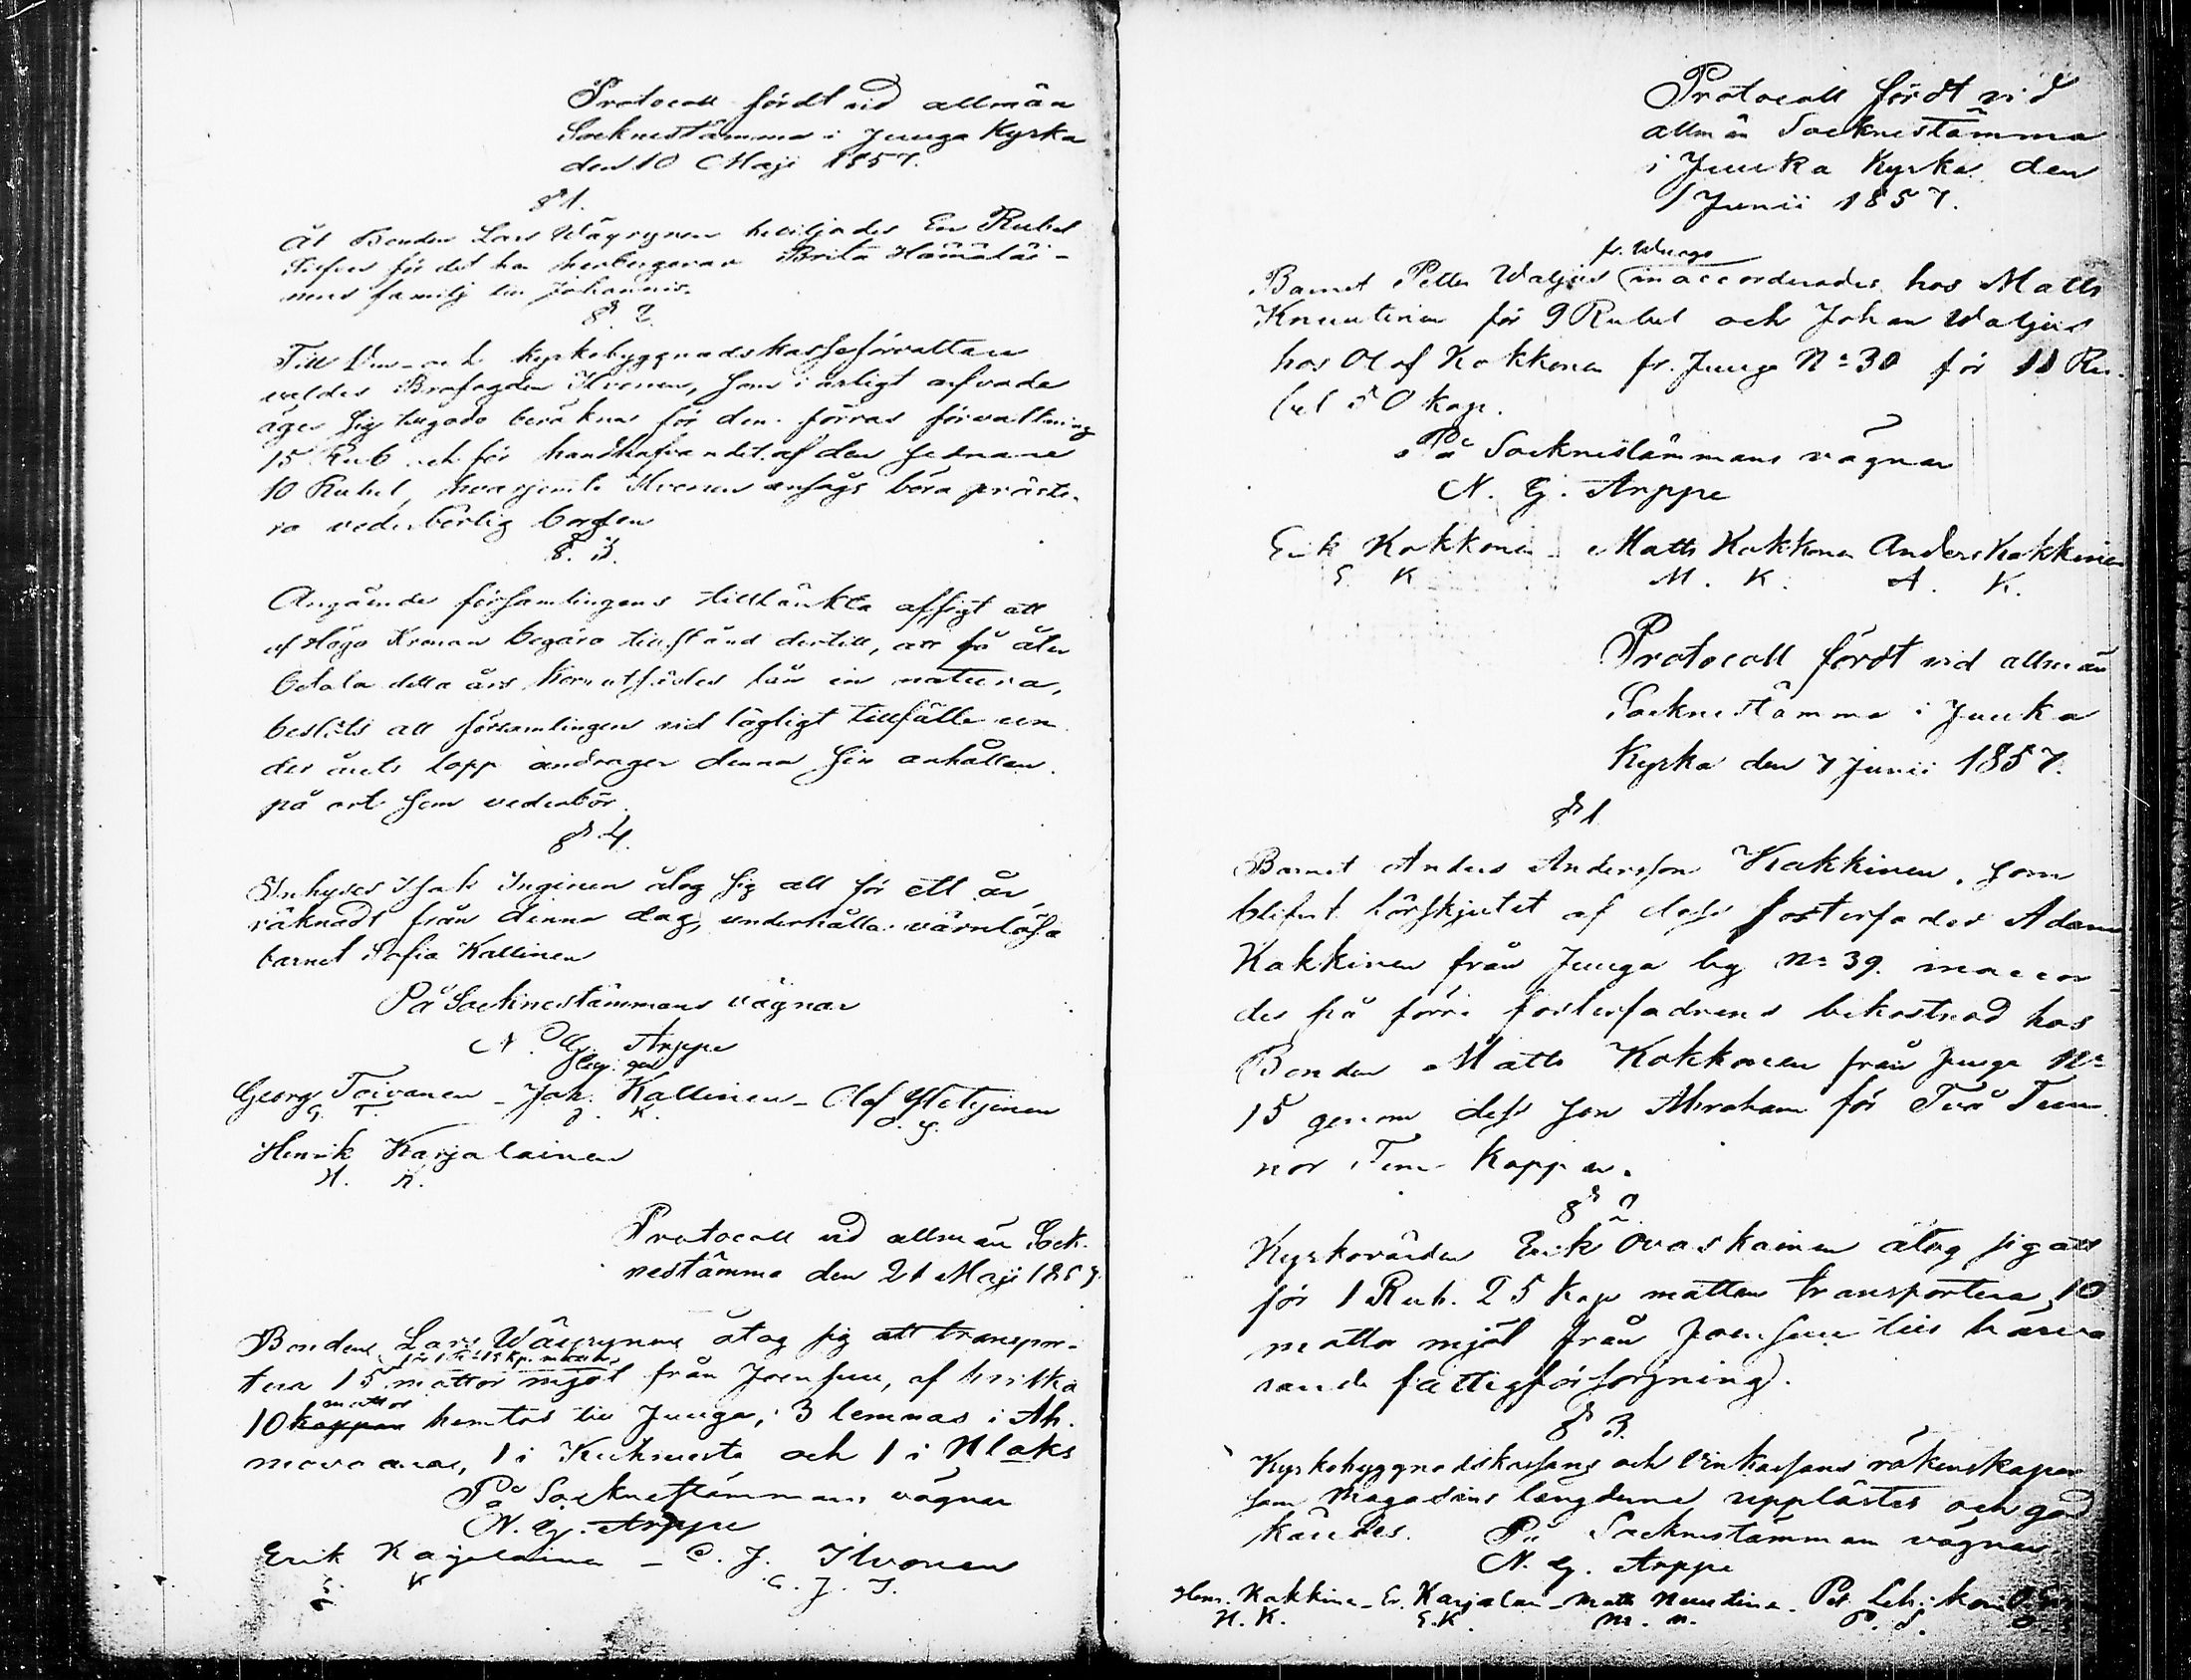 Protocoll fördt vid allmän
Socknestämma i Juuga Kyrka
den 10 Maji 1857.
§ 1.
Åt Bonden Lars Wäyrynen beviljades En Rubel
Silfver för det han herbergerar Brita Hämäläi-
nens familj till Johannis.
§. 2.
Till Vin- och Kyrkobyggnadskasseförvaltare
valdes Brofogden Ilvonen, som i årligt arfvode
äger sig tillgodo beräkna för den förras förvaltning
15 Rub och för handhafvandet af den sednare
10 Rubel, hvarjemte Ilvonen ansågs böra præste-
ra vederbörlig borgen
§. 3.
Angående församlingens tilltänkta afsigt att
af Höga Kronan begära tillstånd dertill, att få åter
betala detta års Kornutsädes lån in natura,
beslöts att församlingen vid lägligt tillfälle un
der årets lopp andrager denna sin anhållan
på ort som vederbör.
§ 4.
Inhyses Isak Inginen åtog sig att för ett år,
räknadt från denna dag, underhålla värnlösa
barnet Sofia Kallinen
På Socknestämmans vägnar
N. G. Arppe
Georg Toivanen - Joh. Kallinen - Olof
G. T. J. K. O.
Henrik Karjalainen
H. K.
Protocoll vid allmän Sock-
nestämma den 21 Maji 1857
Bonden Lars Wäyrynen åtog sig att transpor-
tera 15 mattor mjöl från Joensuu, af hvilka
mattor
10 kappar hemtas till Juuga, 3 lemnas i Ah-
movaara, 1 i Kuhnusta och 1 i
På Socknestämmans vägnar
N. G. Arppe
Erik Karjalainen - C. J. Ilvonen
E. K C. J. I.
Protocoll fördt vid
allmän Socknestämma
i Juuka Kyrka den
1 Junii 1857.
Barnet Petter Waljus inaccorderades hos Matts
Knuutinen för 9 Rubel och Johan Waljus
hos Olof Kokkonen fr. Juuga No 30 för 11 Ru-
bel 50 kop.
På Socknestämmans vägnar
N. G. Arppe
Erik Kokkonen - Matts Kokkonen Anders Kakkinen
E. K M. K. A. K.
Protocoll fördt vid allmän
Socknestämma i Juuka
Kyrka den 7 Junii 1857.
§ 1
Barnet Anders Andersson Kakkinen, som
blifvit bortskjutet af dess fosterfader Adam
Kakkinen från Juuga by No 39. inaccor-
des på förre fosterfadrens bekostnad hos
Bonden Matts Kokkonen från Juuga No
15 genom dess son Abraham för Två Tun-
nor Fem Kappar.
§ 2
Kyrkovärden Erik Ovaskainen åtog sig att
för 1 Rub. 25 Kop mattan transportera 10
mattor mjöl från Joensuu till härva
rande fattigförsörjning.
§ 3.
Kyrkobyggnadskassans och Vinkassans räkenskaper
som Magasins längderne upplästes och god
kändes. På Socknestämmans vägnar
N. G. Arppe
Henr. Kakkinen - Er. Karjalain - Matts Nuutinen - Pet.
H. K. E. K. M. N. P.